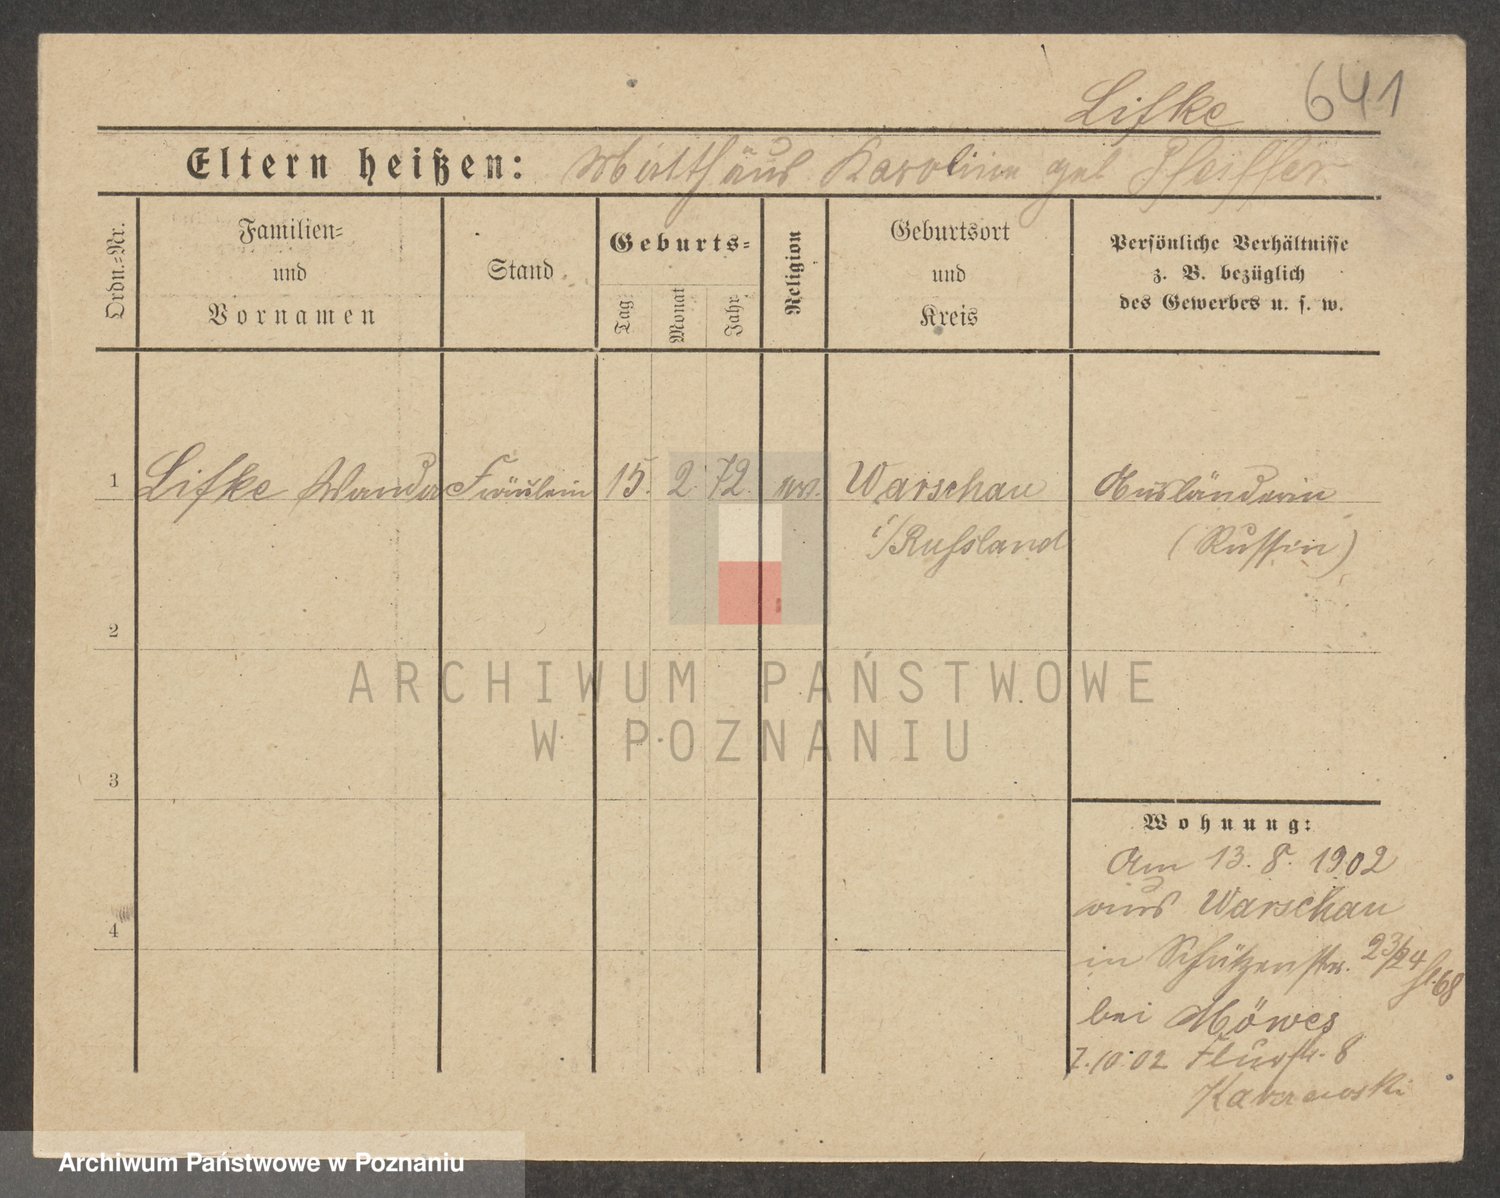 Lifke 641
Eltern heißen: Matthäus Karoline geb Pfeiffer
Ordn.-Nr.
Familien-
und
Vornamen
Stand
Geburts-
Tag
Monat
Jahr
Religion
Geburtsort
und
Kreis
Persönliche Verhältnisse
z. B. bezüglich
des Gewerbes u. s. w.
1 Lifke Wanda Fräulein 15. 2. 72. ev. Warschau Ausländerin
i/Russland (Russin)
2
ARCHIWUM PAŃSTWOWE
W POZNANIU
3
Wohnung:
Am 13. 8. 1902
aus Warschau
4
in Schützenstr. 23/24
bei Möwes
7.10.02 Flurstr. 8
Archiwum Państwowe w Poznaniu